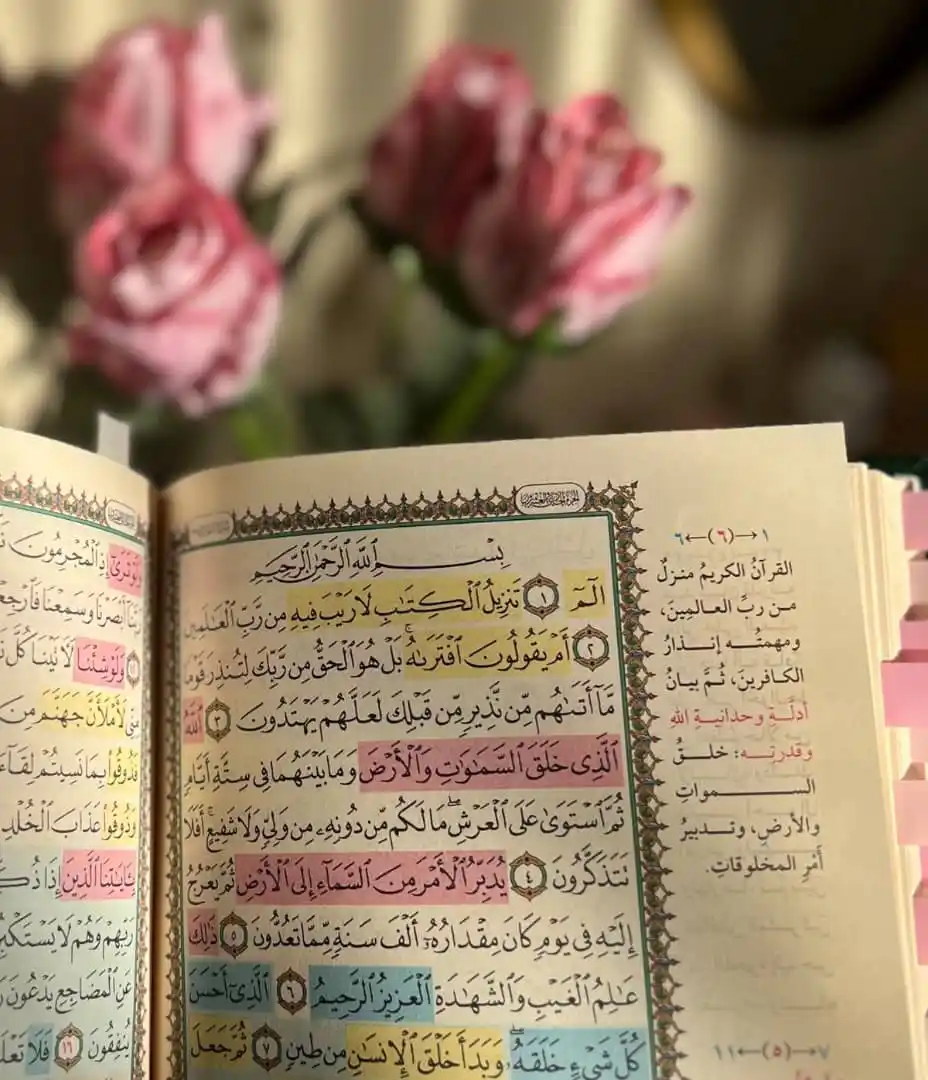 الجزء الحادي والعشرون
بِسْمِ ٱللَّهِ ٱلرَّحْمَٰنِ ٱلرَّحِيمِ
الٓمٓ ١ تَنزِيلُ ٱلْكِتَٰبِ لَا رَيْبَ فِيهِ مِن رَّبِّ ٱلْعَٰلَمِينَ
٢ أَمْ يَقُولُونَ ٱفْتَرَىٰهُ ۚ بَلْ هُوَ ٱلْحَقُّ مِن رَّبِّكَ لِتُنذِرَ قَوْمًا
مَّآ أَتَىٰهُم مِّن نَّذِيرٍ مِّن قَبْلِكَ لَعَلَّهُمْ يَهْتَدُونَ ٣ ٱللَّهُ
ٱلَّذِى خَلَقَ ٱلسَّمَٰوَٰتِ وَٱلْأَرْضَ وَمَا بَيْنَهُمَا فِى سِتَّةِ أَيَّامٍ
ثُمَّ ٱسْتَوَىٰ عَلَى ٱلْعَرْشِ ۖ مَا لَكُم مِّن دُونِهِۦ مِن وَلِىٍّ وَلَا شَفِيعٍ ۚ أَفَلَا
تَتَذَكَّرُونَ ٤ يُدَبِّرُ ٱلْأَمْرَ مِنَ ٱلسَّمَآءِ إِلَى ٱلْأَرْضِ ثُمَّ يَعْرُجُ
إِلَيْهِ فِى يَوْمٍ كَانَ مِقْدَارُهُۥٓ أَلْفَ سَنَةٍ مِّمَّا تَعُدُّونَ ٥ ذَٰلِكَ
عَٰلِمُ ٱلْغَيْبِ وَٱلشَّهَٰدَةِ ٱلْعَزِيزُ ٱلرَّحِيمُ ٦ ٱلَّذِىٓ أَحْسَنَ
كُلَّ شَىْءٍ خَلَقَهُۥ ۖ وَبَدَأَ خَلْقَ ٱلْإِنسَٰنِ مِن طِينٍ ٧ ثُمَّ جَعَلَ
١→(٦)←٦
القرآنُ الكريمُ منزلٌ
من ربِّ العالمِينَ،
ومهمتُه إنذارُ
الكافرينَ، ثُمَّ بيانُ
أدلَّةِ وحدانيةِ اللهِ
وقدرتِه: خلقُ
السمواتِ
والأرضِ، وتدبيرُ
أَمْرِ المخلوقاتِ.
٧→(٥)←١١
وَلَوْ تَرَىٰٓ إِذِ ٱلْمُجْرِمُونَ
رَبَّنَآ أَبْصَرْنَا وَسَمِعْنَا
وَلَوْ شِئْنَا لَءَاتَيْنَا كُلَّ
مِنِّى لَأَمْلَأَنَّ جَهَنَّمَ مِنَ
فَذُوقُوا۟ بِمَا نَسِيتُمْ لِقَآءَ
وَذُوقُوا۟ عَذَابَ ٱلْخُلْدِ
بِـَٔايَٰتِنَا ٱلَّذِينَ إِذَا
رَبِّهِمْ وَهُمْ لَا
عَنِ ٱلْمَضَاجِعِ يَدْعُونَ
يُنفِقُونَ ١٦ فَلَا